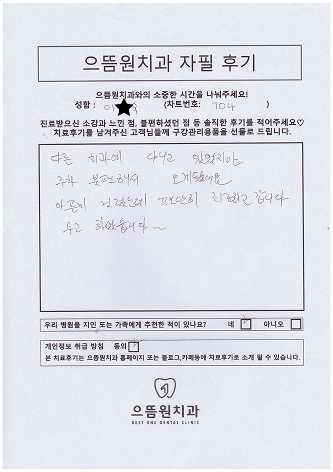 으뜸원치과 자필 후기
으뜸원치과와의 소중한 시간을 나눠주세요!
성함 : 이 (차트번호: 704 )
진료받으신 소감과 느낀 점, 불편하셨던 점 등 솔직한 후기를 적어주세요♡
치료후기를 남겨주신 고객님들께 구강관리용품을 선물로 드립니다.
다른 치과에 다니고 있었지만
주차 불편해서 오게됐어요
아픈지 걱정했는데 편안히 치료하고 갑니다
두고 하겠습니다~
우리 병원을 지인 또는 가족에게 추천한 적이 있나요? 네 ☑ 아니오 ☐
개인정보 취급 방침 동의 ☑
본 치료후기는 으뜸원치과 홈페이지 또는 블로그,카페등에 치료후기로 소개 될 수 있습니다.
으뜸원치과
BEST ONE DENTAL CLINIC